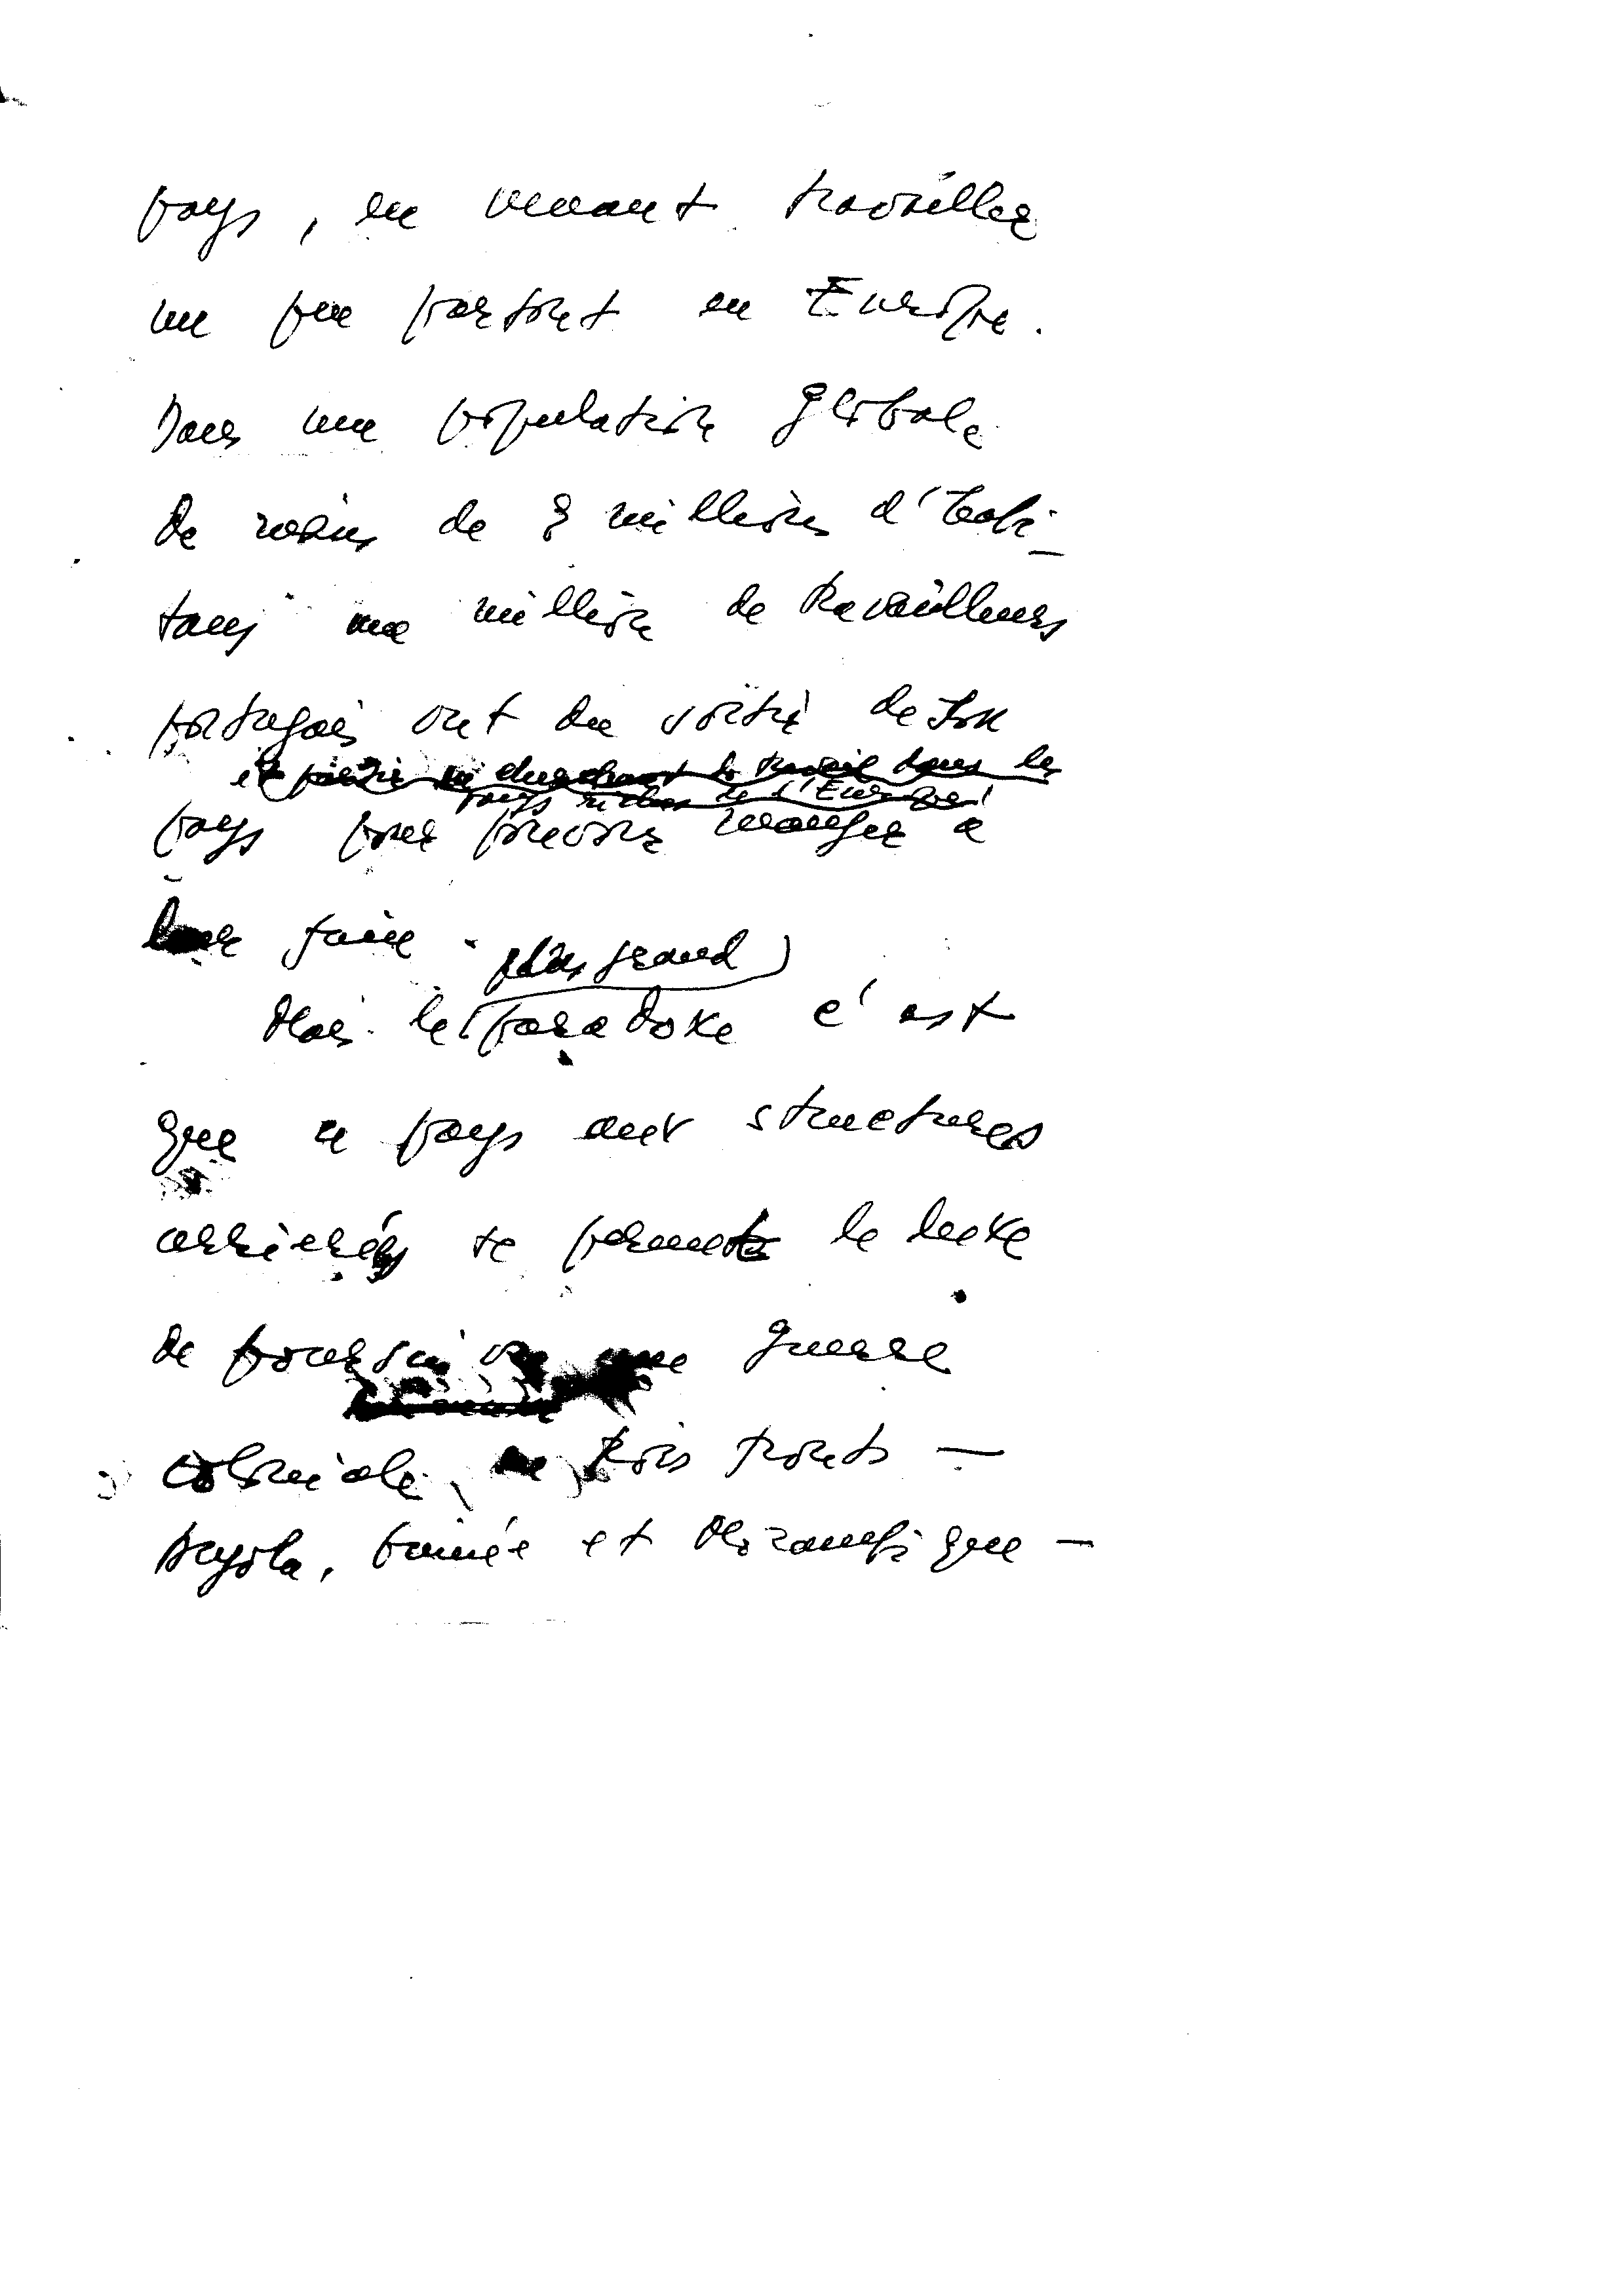 pays, en venant travailler
un peu partout en Europe.
Dans une population globale
de moins de 9 millions d'habi-
tans un million de travailleurs
portugais ont du sortir de son
et partir en cherchant le travail dans les
pays riches de l'Europe
pays pour pouvoir manger a
leur faim.
plus grand
Mais le paradoxe c'est
que ce pays aux structures
arriérés se permet le luxe
de poursuivre une guerre
coloniale, trois fronts —
Angola, Guinée et Mozambique —